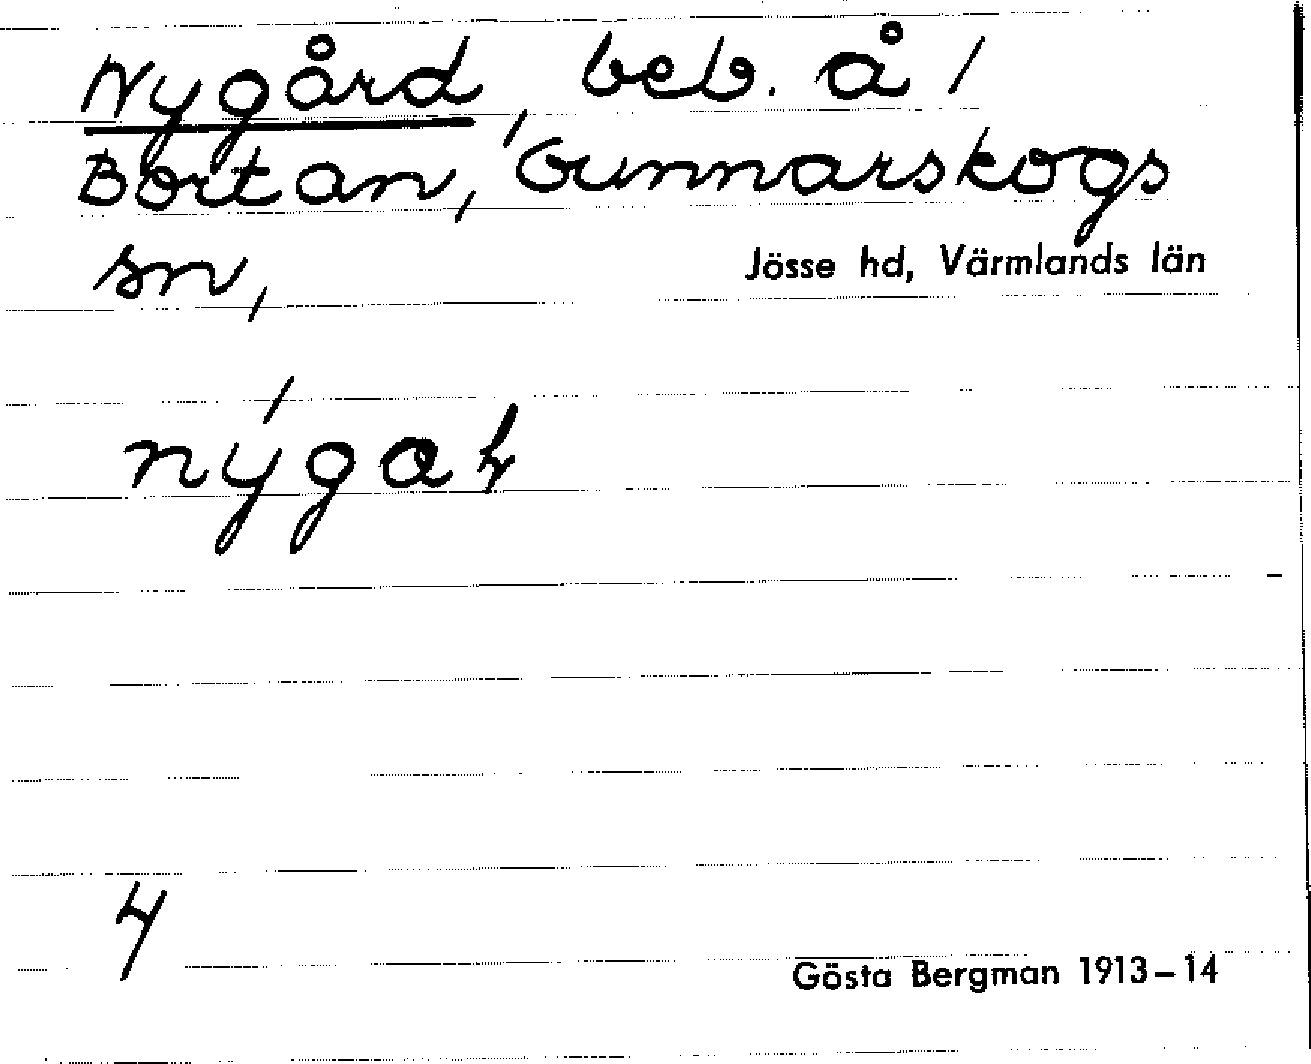 Nygård, beb. å 1
Bortan, Gunnarskogs
sn, Jösse hd, Värmlands län
4
Gösta Bergman 1913–14